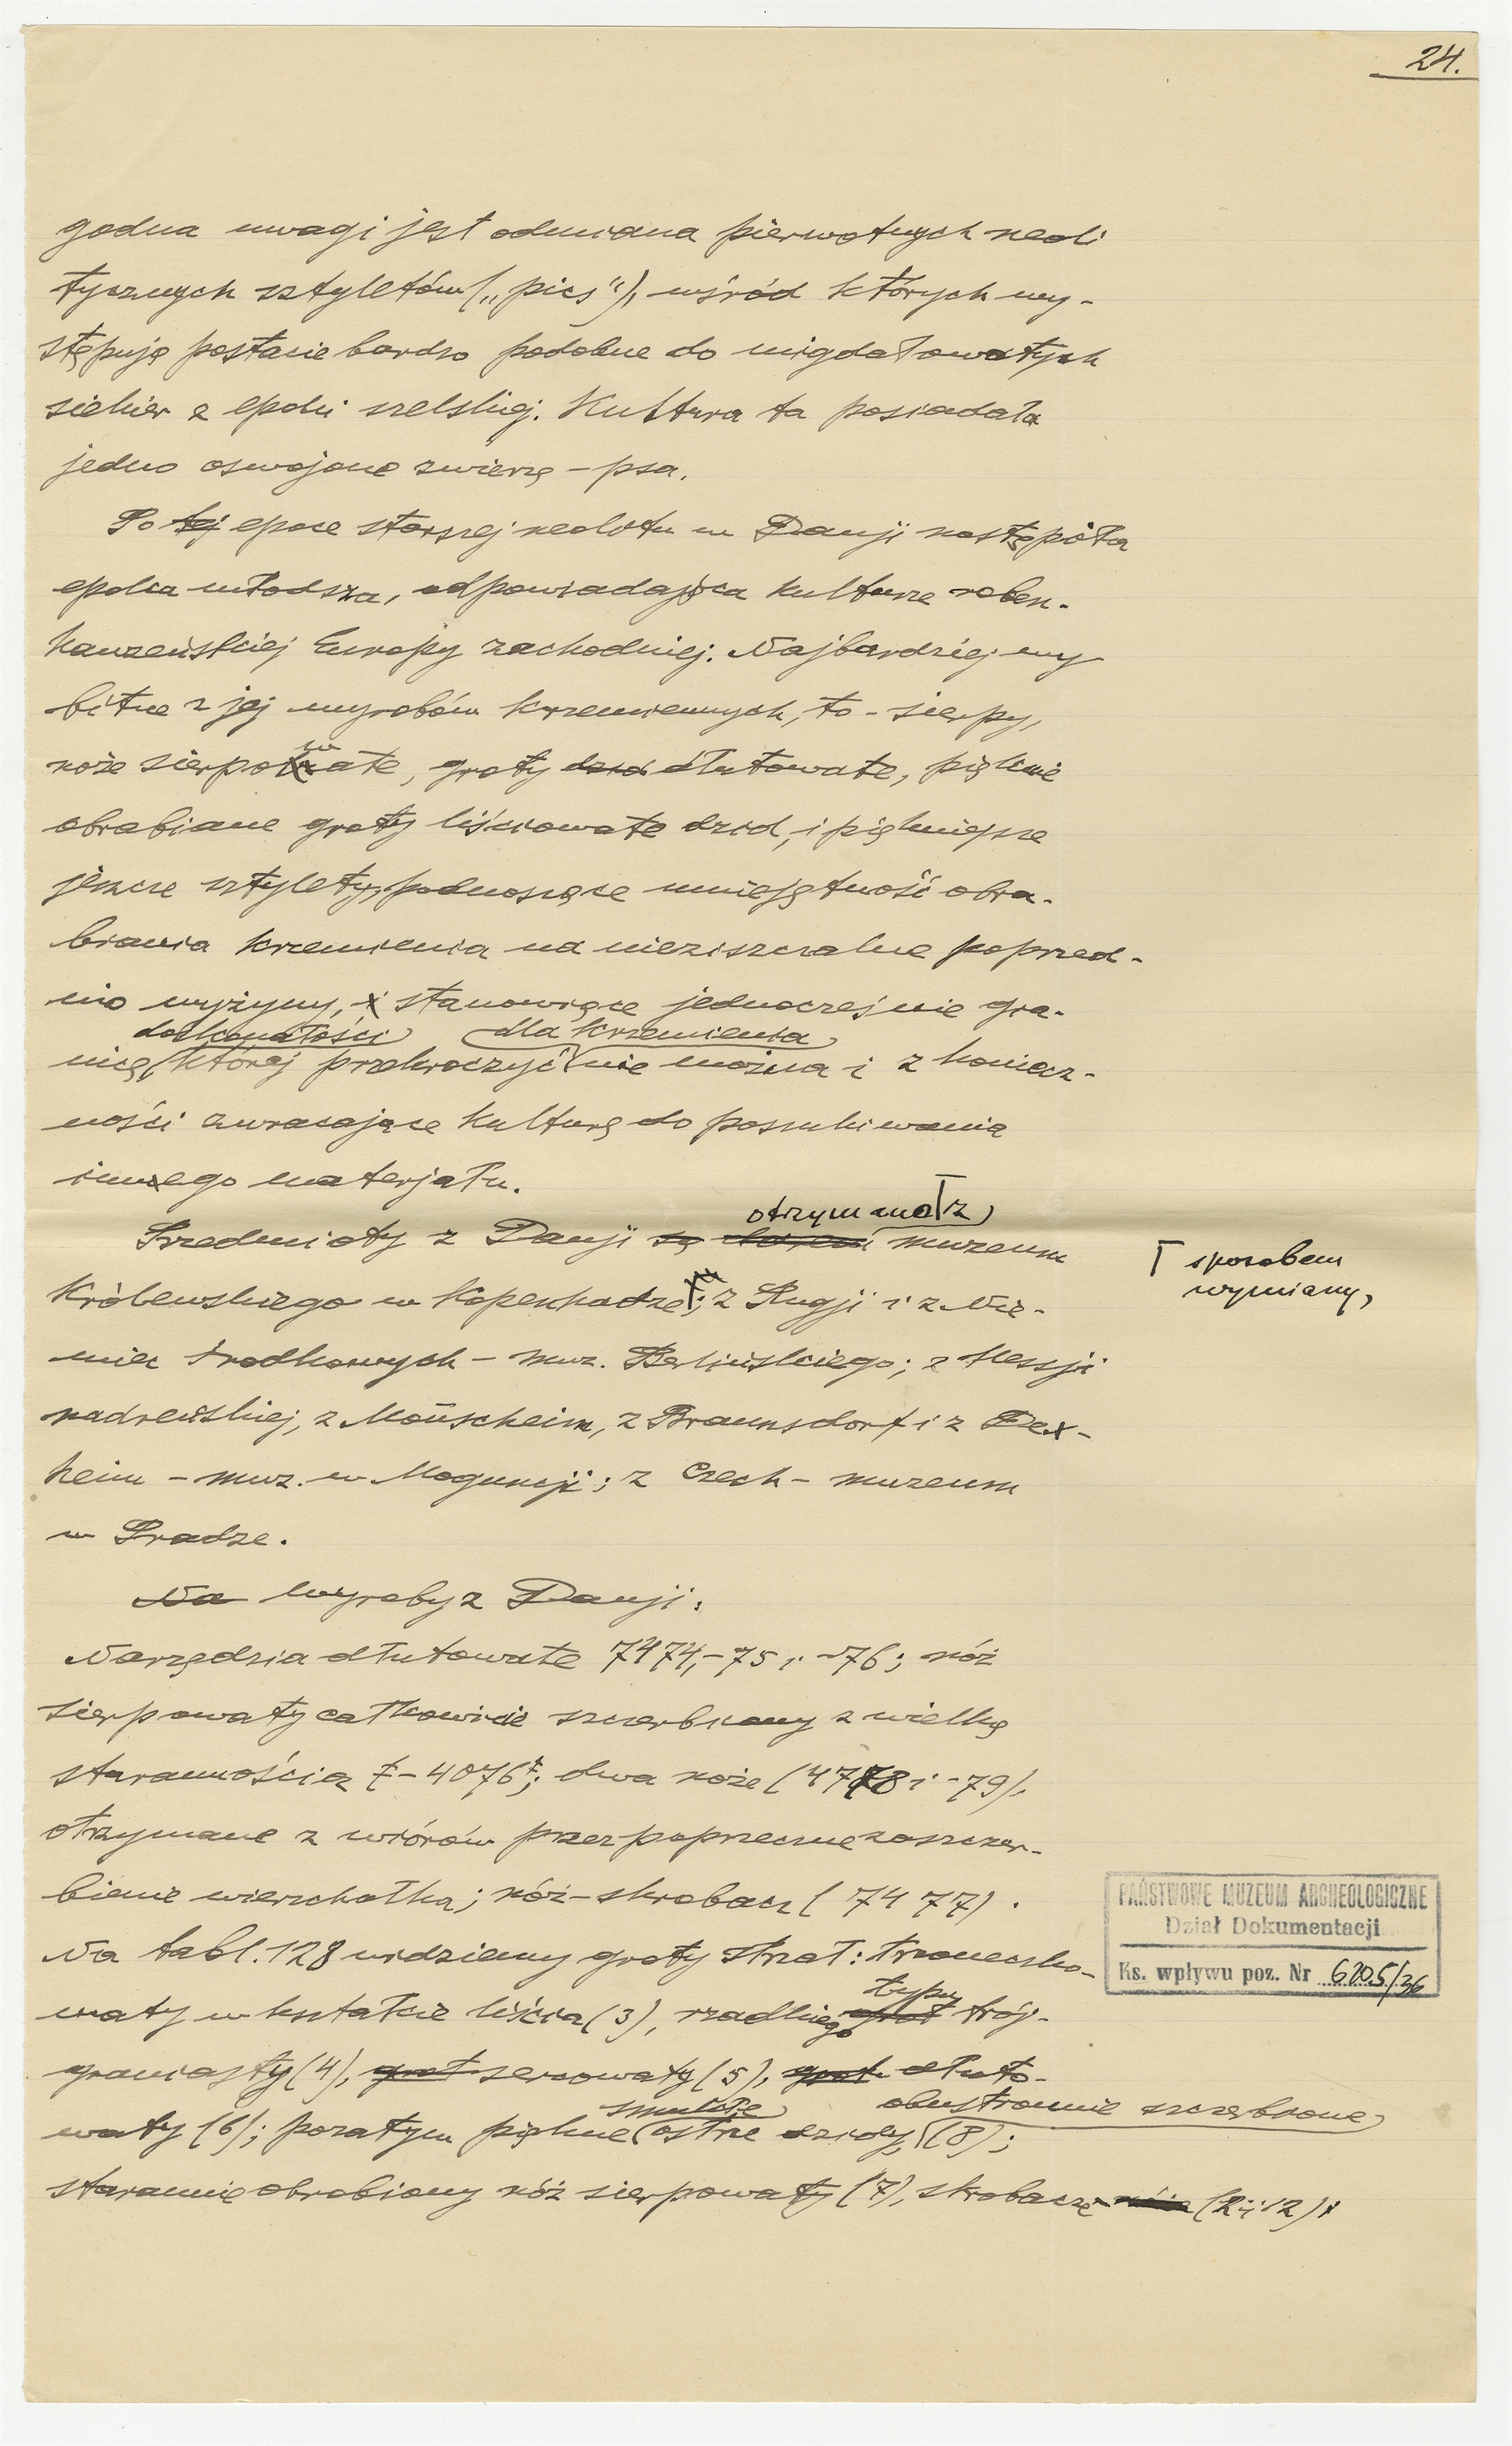 24.
godna uwagi jest odmiana pierwotnych neoli
tycznych sztyletów („pics"), wśród których wy-
stępują postacie bardzo podobne do migdałowatych
siekier z epoki szelskiej. Kultura ta posiadała
jedno oswojone zwierzę – psa.
Po tej epoce starszej neolitu w Danji nastąpiła
epoka młodsza, odpowiadająca kulturze roben-
hauzeńskiej Europy zachodniej. Najbardziej wy
bitne z jej wyrobów krzemiennych, to – sierpy,
w
noże sierpowate, groty dłutowate, pięknie
obrabiane groty liściowate dzid, i piękniejsze
jeszcze sztylety, podnoszące umiejętność obra-
biania krzemienia na nieziszczalne poprzed-
nio wyżyny, i stanowiące jednocześnie gra-
doskonałości dla krzemienia
nicę, której przekroczyć nie można i z koniecz-
ności zwracające kulturę do poszukiwania
innego materjału.
otrzymano z
Przedmioty z Danji są muzeum
sposobem
wymiany,
Królewskiego w Kopenhadze; z Rugji i z Nie-
miec środkowych – muz. Berlińskiego; z Hessji
nadreńskiej, z Monscheim, z Braunsdorf i z Dex-
heim – muz. w Moguncji; z Czech – muzeum
w Pradze.
Na Wyroby z Danji:
Narzędzia dłutowate 7474,-75 i -76; nóż
sierpowaty całkowicie szczerbiony z wielką
starannością – 4076; dwa noże (4778 i -79),
otrzymane z wiórów przez poprzeczne zaszczer-
bienie wierzchołka; nóż-skrobacz (7477).
Na tabl. 128 widzimy groty strzał: trzoneczko-
typu
waty w kształcie liścia (3), rzadkiego grot trój-
graniasty (4), grot sercowaty (5), grot dłuto-
smukłe obustronnie szczerbione
waty (6); pozatym piękne ostrze dzidy, (8);
starannie obrobiony nóż sierpowaty (7), skrobacze (2 i 12)
PAŃSTWOWE MUZEUM ARCHEOLOGICZNE
Dział Dokumentacji
Ks. wpływu poz. Nr 6205/36